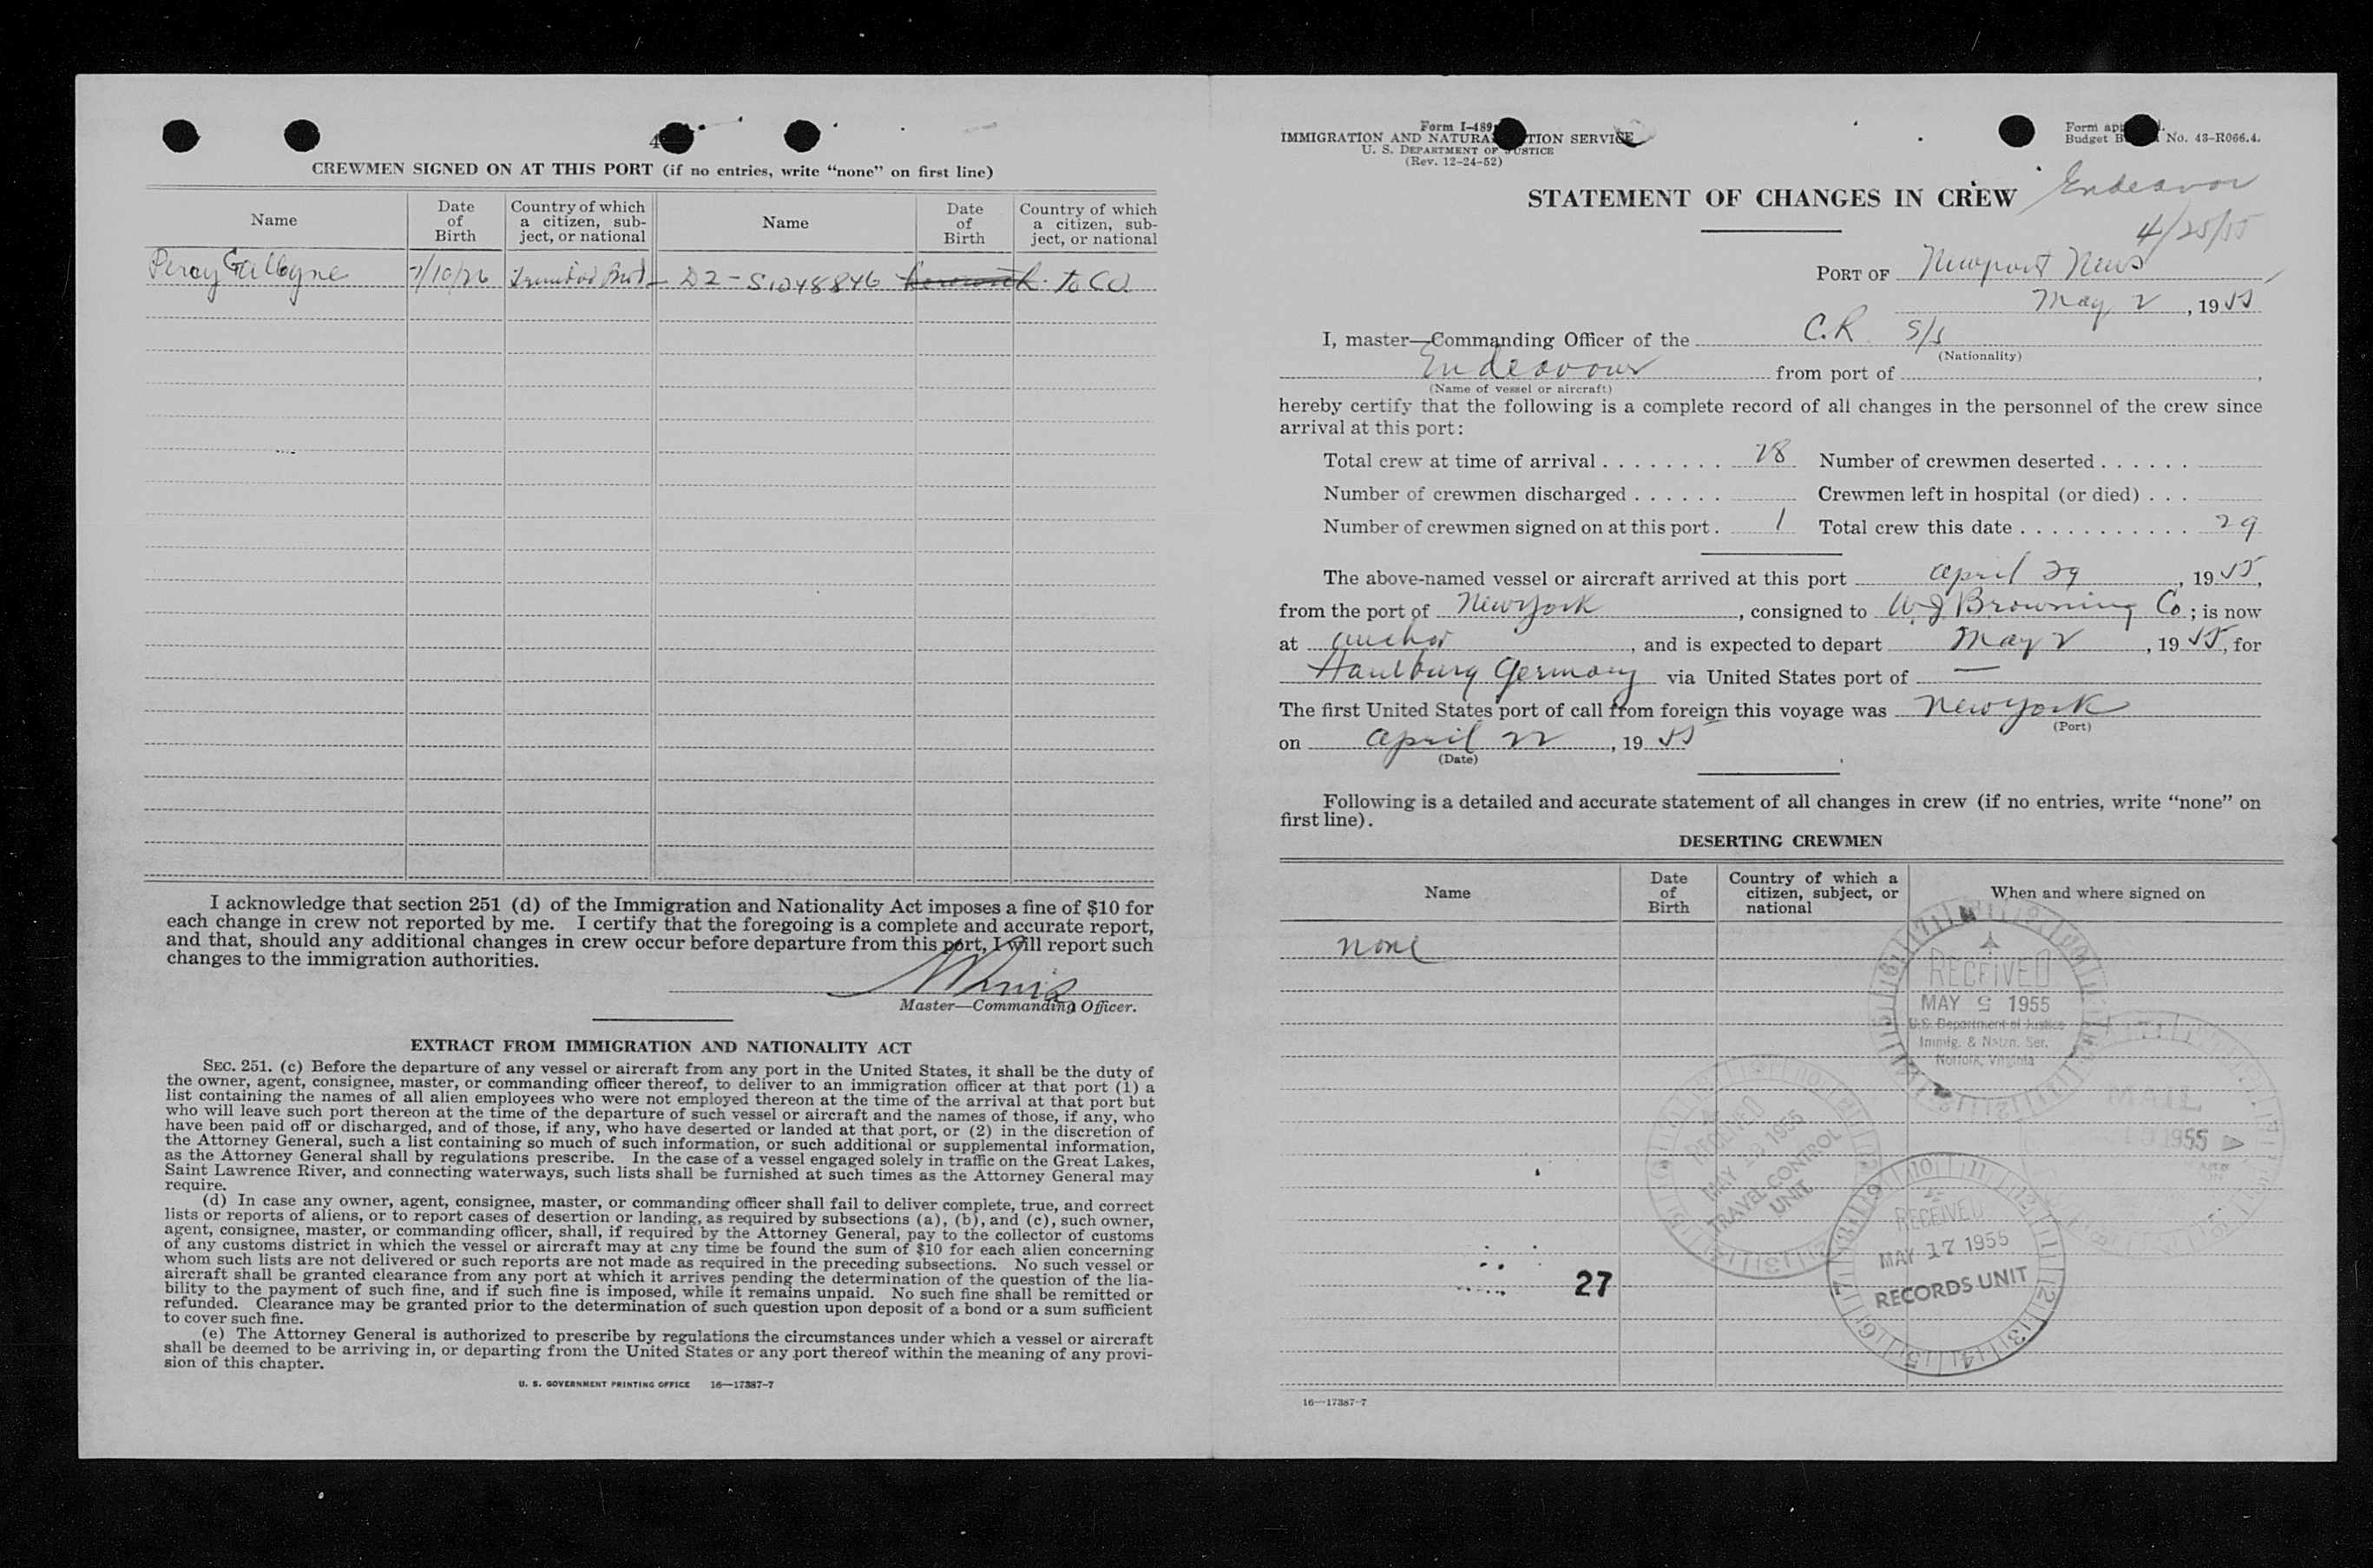 4
CREWMEN SIGNED ON AT THIS PORT (if no entries, write “none” on first line)
Name
Date of Birth
Country of which a citizen, subject, or national
Name
Date of Birth
Country of which a citizen, subject, or national
Percy 7/10/26 D2-S1248846 to CO
I acknowledge that section 251 (d) of the Immigration and Nationality Act imposes a fine of $10 for
each change in crew not reported by me. I certify that the foregoing is a complete and accurate report,
and that, should any additional changes in crew occur before departure from this port, I will report such
changes to the immigration authorities.
Master—Commanding Officer.
EXTRACT FROM IMMIGRATION AND NATIONALITY ACT
SEC. 251. (c) Before the departure of any vessel or aircraft from any port in the United States, it shall be the duty of
the owner, agent, consignee, master, or commanding officer thereof, to deliver to an immigration officer at that port (1) a
list containing the names of all alien employees who were not employed thereon at the time of the arrival at that port but
who will leave such port thereon at the time of the departure of such vessel or aircraft and the names of those, if any, who
have been paid off or discharged, and of those, if any, who have deserted or landed at that port, or (2) in the discretion of
the Attorney General, such a list containing so much of such information, or such additional or supplemental information,
as the Attorney General shall by regulations prescribe. In the case of a vessel engaged solely in traffic on the Great Lakes,
Saint Lawrence River, and connecting waterways, such lists shall be furnished at such times as the Attorney General may
require.
(d) In case any owner, agent, consignee, master, or commanding officer shall fail to deliver complete, true, and correct
lists or reports of aliens, or to report cases of desertion or landing, as required by subsections (a), (b), and (c), such owner,
agent, consignee, master, or commanding officer, shall, if required by the Attorney General, pay to the collector of customs
of any customs district in which the vessel or aircraft may at any time be found the sum of $10 for each alien concerning
whom such lists are not delivered or such reports are not made as required in the preceding subsections. No such vessel or
aircraft shall be granted clearance from any port at which it arrives pending the determination of the question of the lia-
bility to the payment of such fine, and if such fine is imposed, while it remains unpaid. No such fine shall be remitted or
refunded. Clearance may be granted prior to the determination of such question upon deposit of a bond or a sum sufficient
to cover such fine.
(e) The Attorney General is authorized to prescribe by regulations the circumstances under which a vessel or aircraft
shall be deemed to be arriving in, or departing from the United States or any port thereof within the meaning of any provi-
sion of this chapter.
U. S. GOVERNMENT PRINTING OFFICE 16—17387-7
Form I-489
IMMIGRATION AND NATURALIZATION SERVICE
U. S. DEPARTMENT OF JUSTICE
(Rev. 12-24-52)
Form approved.
Budget Bureau No. 43-R066.4.
STATEMENT OF CHANGES IN CREW Endeavor
4/25/55
PORT OF Newport News
May 2, 1955
I, master—Commanding Officer of the C.R S/S
(Nationality)
Endeavour from port of
(Name of vessel or aircraft)
hereby certify that the following is a complete record of all changes in the personnel of the crew since
arrival at this port:
Total crew at time of arrival 28 Number of crewmen deserted
Number of crewmen discharged Crewmen left in hospital (or died)
Number of crewmen signed on at this port 1 Total crew this date 29
The above-named vessel or aircraft arrived at this port April 29, 1955,
from the port of New York, consigned to W J Browning Co; is now
at anchor, and is expected to depart May 2, 1955, for
Hamburg Germany via United States port of —
The first United States port of call from foreign this voyage was New York
(Port)
on April 22, 1955
(Date)
Following is a detailed and accurate statement of all changes in crew (if no entries, write “none” on
first line).
DESERTING CREWMEN
Name
Date of Birth
Country of which a citizen, subject, or national
When and where signed on
none
RECEIVED
MAY 5 1955
U.S. Department of Justice
Immig. & Natzn. Ser.
Norfolk, Virginia
MAIL
1955
RECEIVED
MAY 1955
TRAVEL CONTROL
UNIT
RECEIVED
MAY 17 1955
RECORDS UNIT
27
16—17387-7